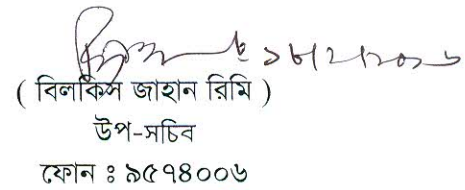 ১৮/২/২০১৬
( বিলকিস জাহান রিমি )
উপ-সচিব
ফোন ঃ ৯৫৭৪০০৬